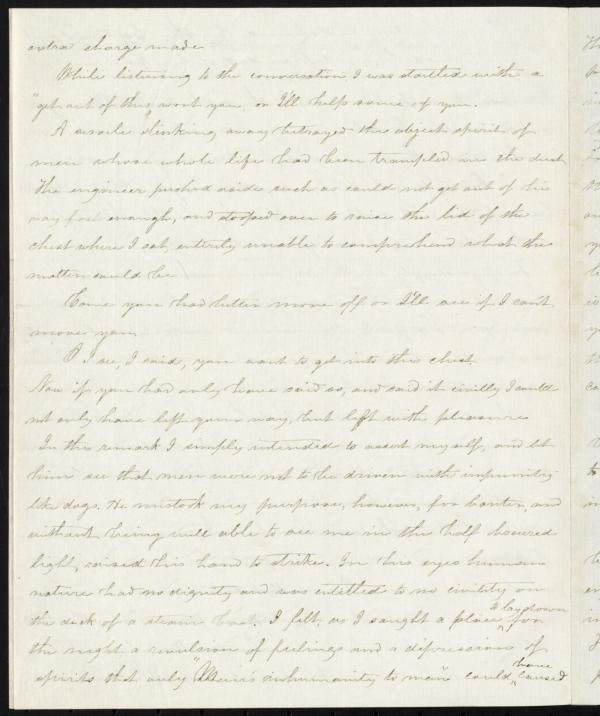 extra charge made
While listening to the conversation, I was startled with a
"get out of this wont you, or I'll help some of you.
A servile slinking away betrayed the abject spirit of
men whose whole life had been trampled in the dust
The engineer pushed aside such as could not get out of his
way fast enough, and stooped over to raise the lid of the
chest where I sat, entirely unable to comprehend what the
matter could be
Come you had better move off or I'll see if I can't
move you
O I see, I said, you want to get into this chest.
Now if you had only have said so, and said it civilly I could
not only have left your way, but left with pleasure
In this remark I simply intended to assert myself, and let
him see that men were not to be driven with impunity
like dogs. He mistook my purpose, however, for banter, and
without being well able to see me in the half obscured
light, raised his hand to strike. In his eyes human
nature had no dignity and was entitled to no civility on
the deck of a steam boat. I felt, as I sought a place to lay down for
the night a revulsion of feelings and a depression of
spirits that only "Man's inhumanity to man" could have caused